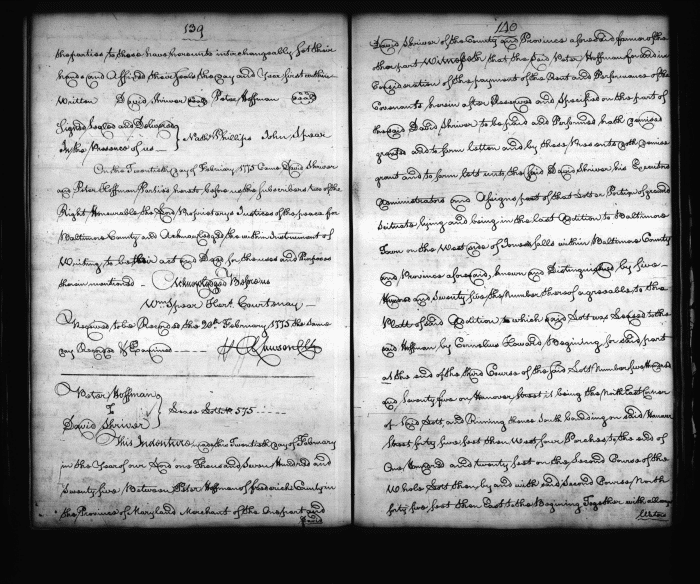 139
the parties to these have hereunto interchangeably Set their
hands and Affixed their Seals the day and Year first within
Written David Shriver Seal Peter Hoffman Seal
Signed Sealed and Delivered
In the Presence of us } Nath Phillips John Spear
On the Twentieth day of February 1775 Came David Shriver
and Peter Hoffman Parties hereto before us the Subscribers two of the
Right Honourable the Lord Proprietarys Justices of the peace for
Baltimore County and Acknowledged the within Instrument of
Writing to be their act and Deed for the uses and Purposes
therein mentioned Acknowledged Before us
Wm Spear Hert. Courtenay
Received to be Recorded the 20th February 1775 the Same
day Recorded & Examined
Peter Hoffman
To
David Shriver } Lease Lott No 575
This Indenture made this Twentieth day of February
in the Year of our Lord one Thousand Seven Hundred and
Seventy five Between Peter Hoffman of Frederick County in
the Province of Maryland Merchant of the One part and
David
140
David Shriver of the County and Province aforesaid farmer of the
other part Witnesseth that the Said Peter Hoffman for and in
Consideration of the payment of the Rent and Performance of the
Covenants herein after Reserved and Specified on the part of
the said David Shriver to be paid and Performed hath demised
granted and to farm letten and by these Presents doth demise
grant and to farm lett unto the Said David Shriver his Executors
Administrators and Assigns part of that Lott or Portion of ground
Situate lying and being in the last Addition to Baltimore
Town on the West side of Jones falls within Baltimore County
and Province aforesaid, known and Distinguished by five
Hundred and Seventy five the Number thereof agreeable to the
Platt of said Addition to which said Lott was Leased to the
said Hoffman by Cornelius Howard Beginning for said part
at the end of the third Course of the said Lott Number five Hundred
and Seventy five on Hanover Street it being the North East Corner
of said Lott and Running thence South bounding on said Hanover
Street forty five feet then West four Perches to the end of
One Hundred and twenty feet on the Second Course of the
Whole Lott then by and with said Second Course North
forty five feet then East to the Beginning Together with all ways
Waters